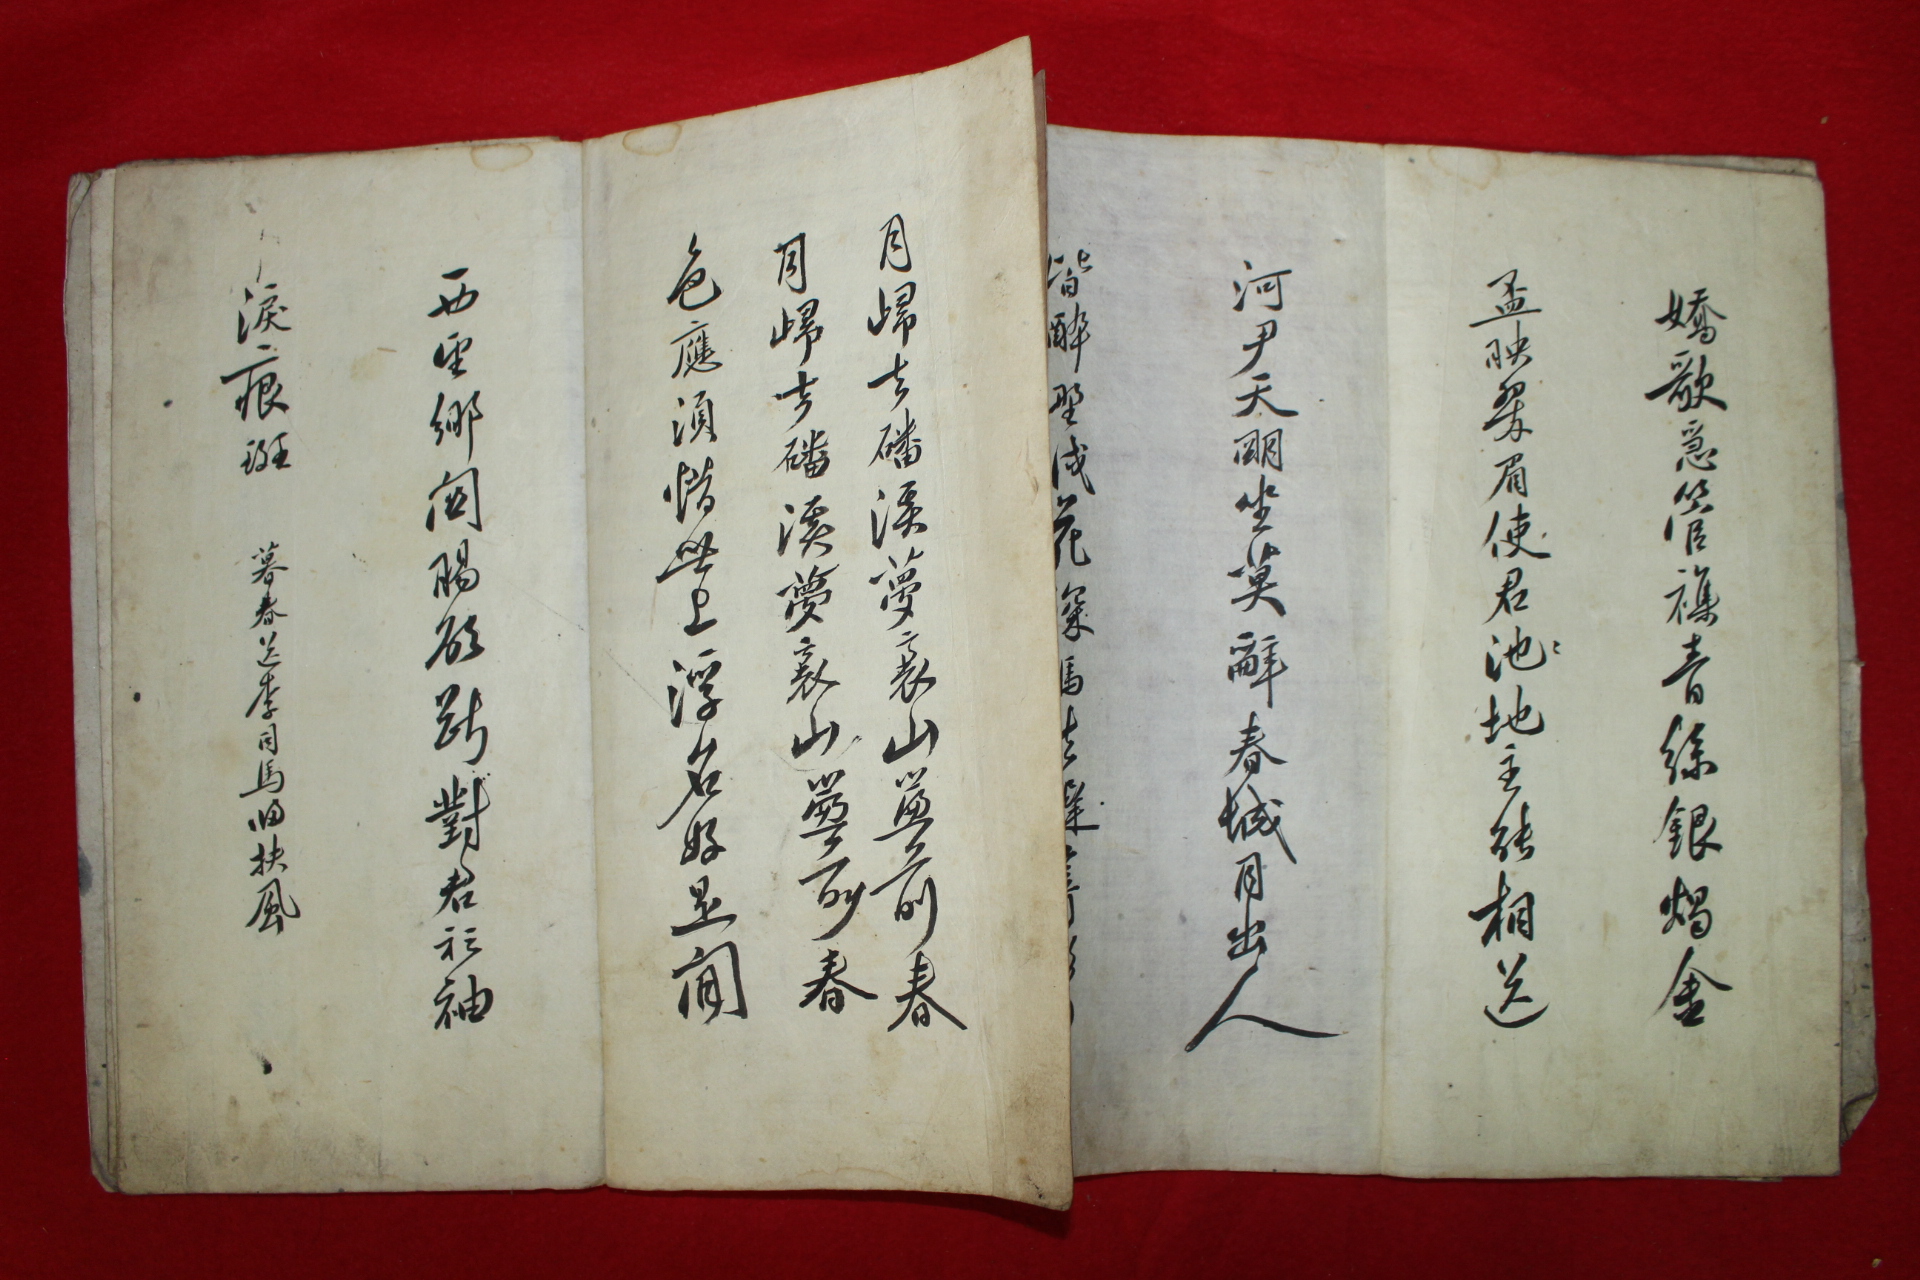 嬌歌急管襍青絲銀燭金
盃映翠眉使君池地主能相送
河尹天明坐莫辭春城月出人
皆醉野戍花深馬去遲
月歸去磻溪夢裏山簾前春
月歸去磻溪夢裏山簾前春
色應須惜世上浮名好是閒
西望鄉關腸欲斷對君衫袖
淚痕斑 暮春送李司馬歸扶風